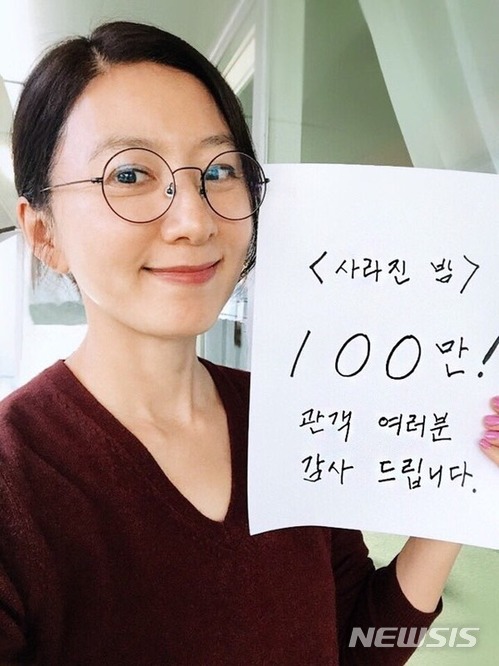 <사라진 밤>
100만!
관객 여러분
감사 드립니다.
NEWSIS